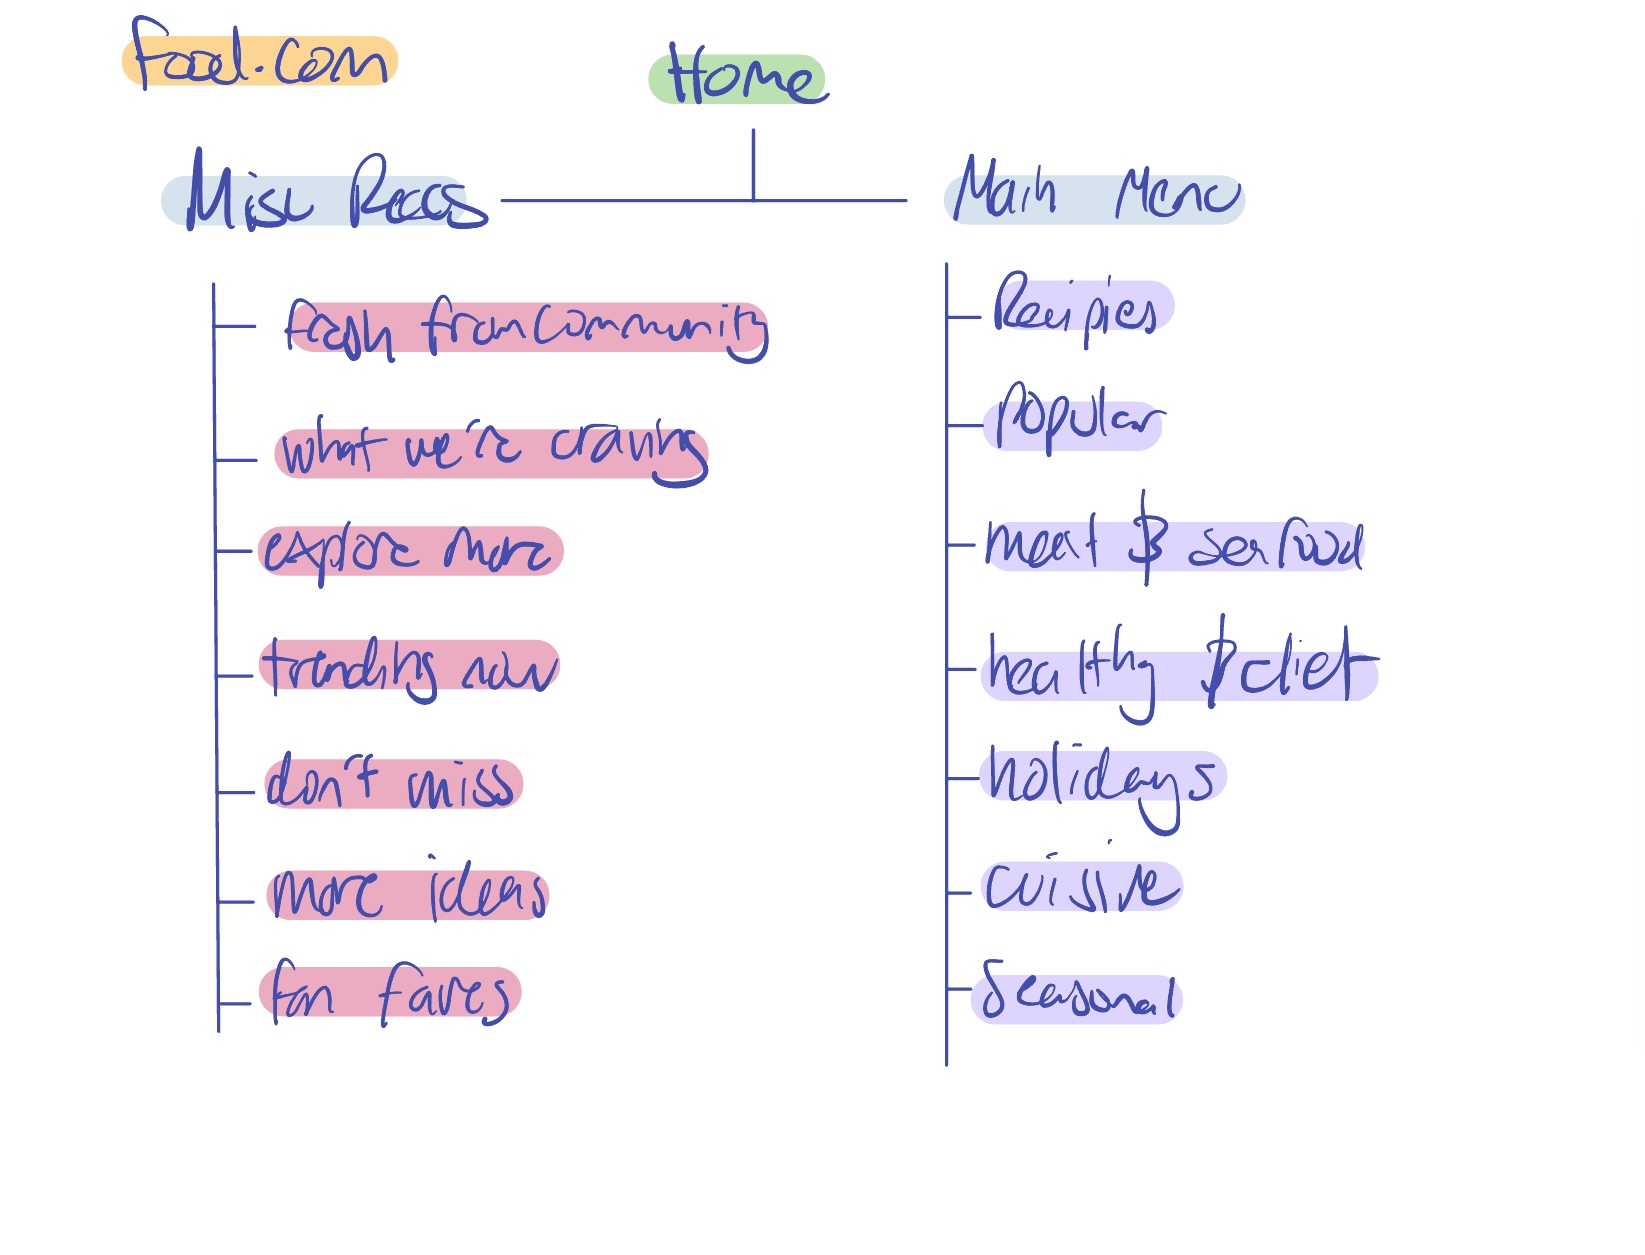 Food.com
Home
Misc Recs
Main Menu
fresh from community
what we're craving
explore more
trending now
don't miss
more ideas
fan faves
Recipies
Popular
meat & seafood
healthy & diet
holidays
cuisine
Seasonal